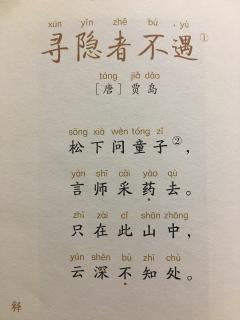 xún yǐn zhě bú yù
寻隐者不遇①
táng jiǎ dǎo
[唐] 贾岛
sōng xià wèn tóng zǐ
松下问童子②，
yán shī cǎi yào qù
言师采药去。
zhǐ zài cǐ shān zhōng
只在此山中，
yún shēn bù zhī chù
云深不知处。
释